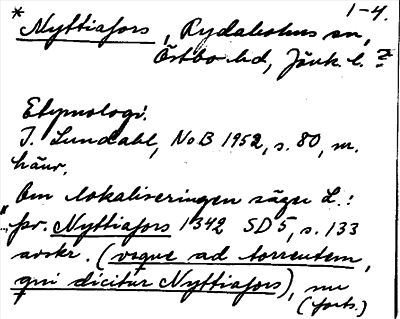 1-4.
* Nyttiafors, Rydaholms sn,
Östbo hd, Jönk. l.
Etymologi.
I. Lundahl, NoB 1952, s. 80, m.
hänv.
Om lokaliseringen säger L.:
"pr. Nyttiafors 1342 SD 5, s. 133
avskr. (usque ad torrentem,
qui dicitur Nyttiafors), nu
(forts.)